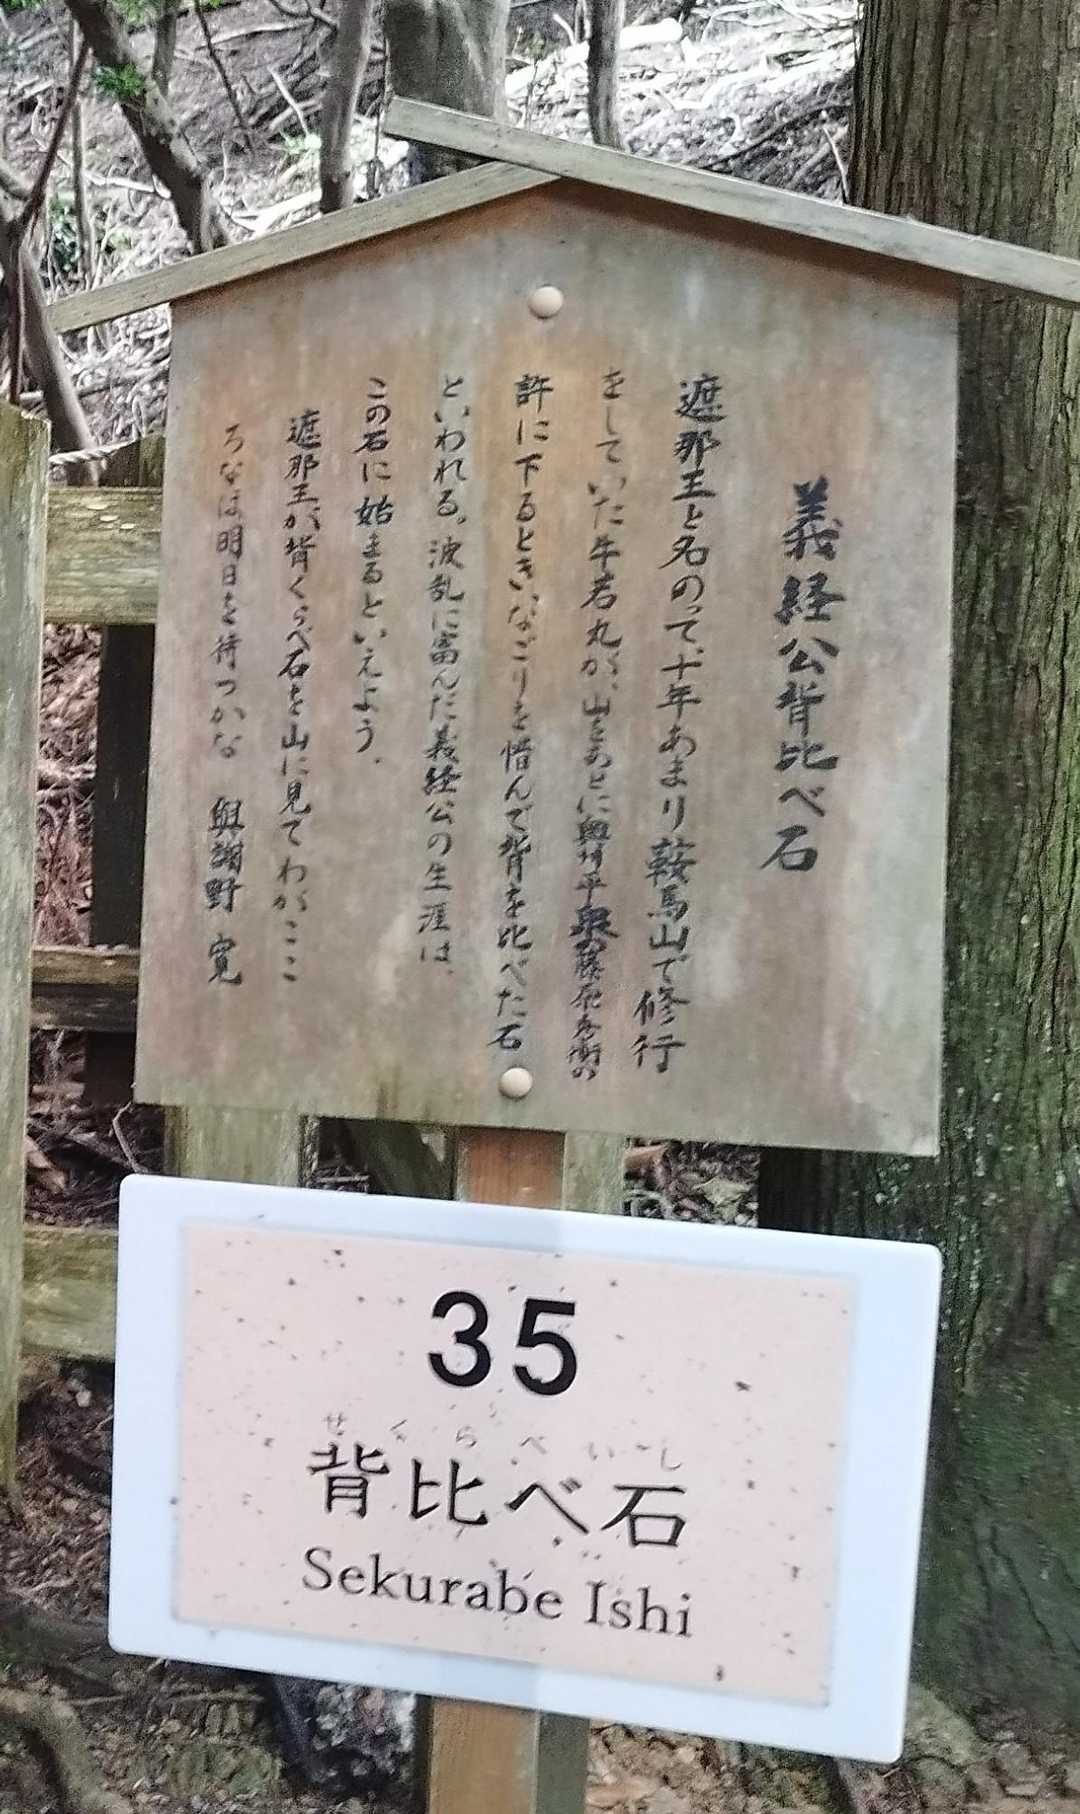 義経公背比べ石
遮那王と名のって、十年あまり鞍馬山で修行
をしていた牛若丸が、山をあとに奥州平泉の藤原秀衡の
許に下るとき、なごりを惜んで背を比べた石
といわれる。波乱に富んだ義経公の生涯は、
この石に始まるといえよう。
遮那王が背くらべ石を山に見てわがこころ
なほ明日を待つかな 與謝野 寛
35
せくらべいし
背比べ石
Sekurabe Ishi